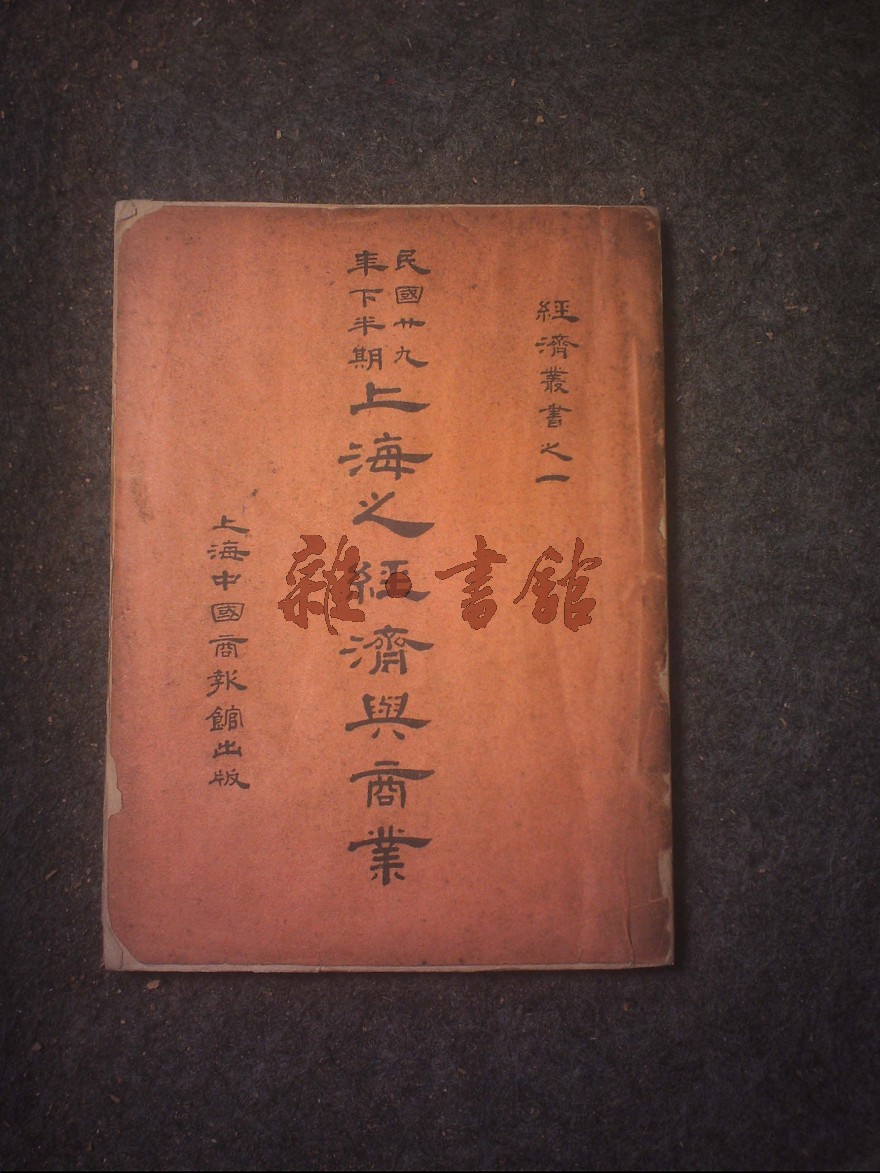 經濟叢書之一
民國廿九
年下半期
上海之經濟與商業
上海中國商報館出版
雜·書館